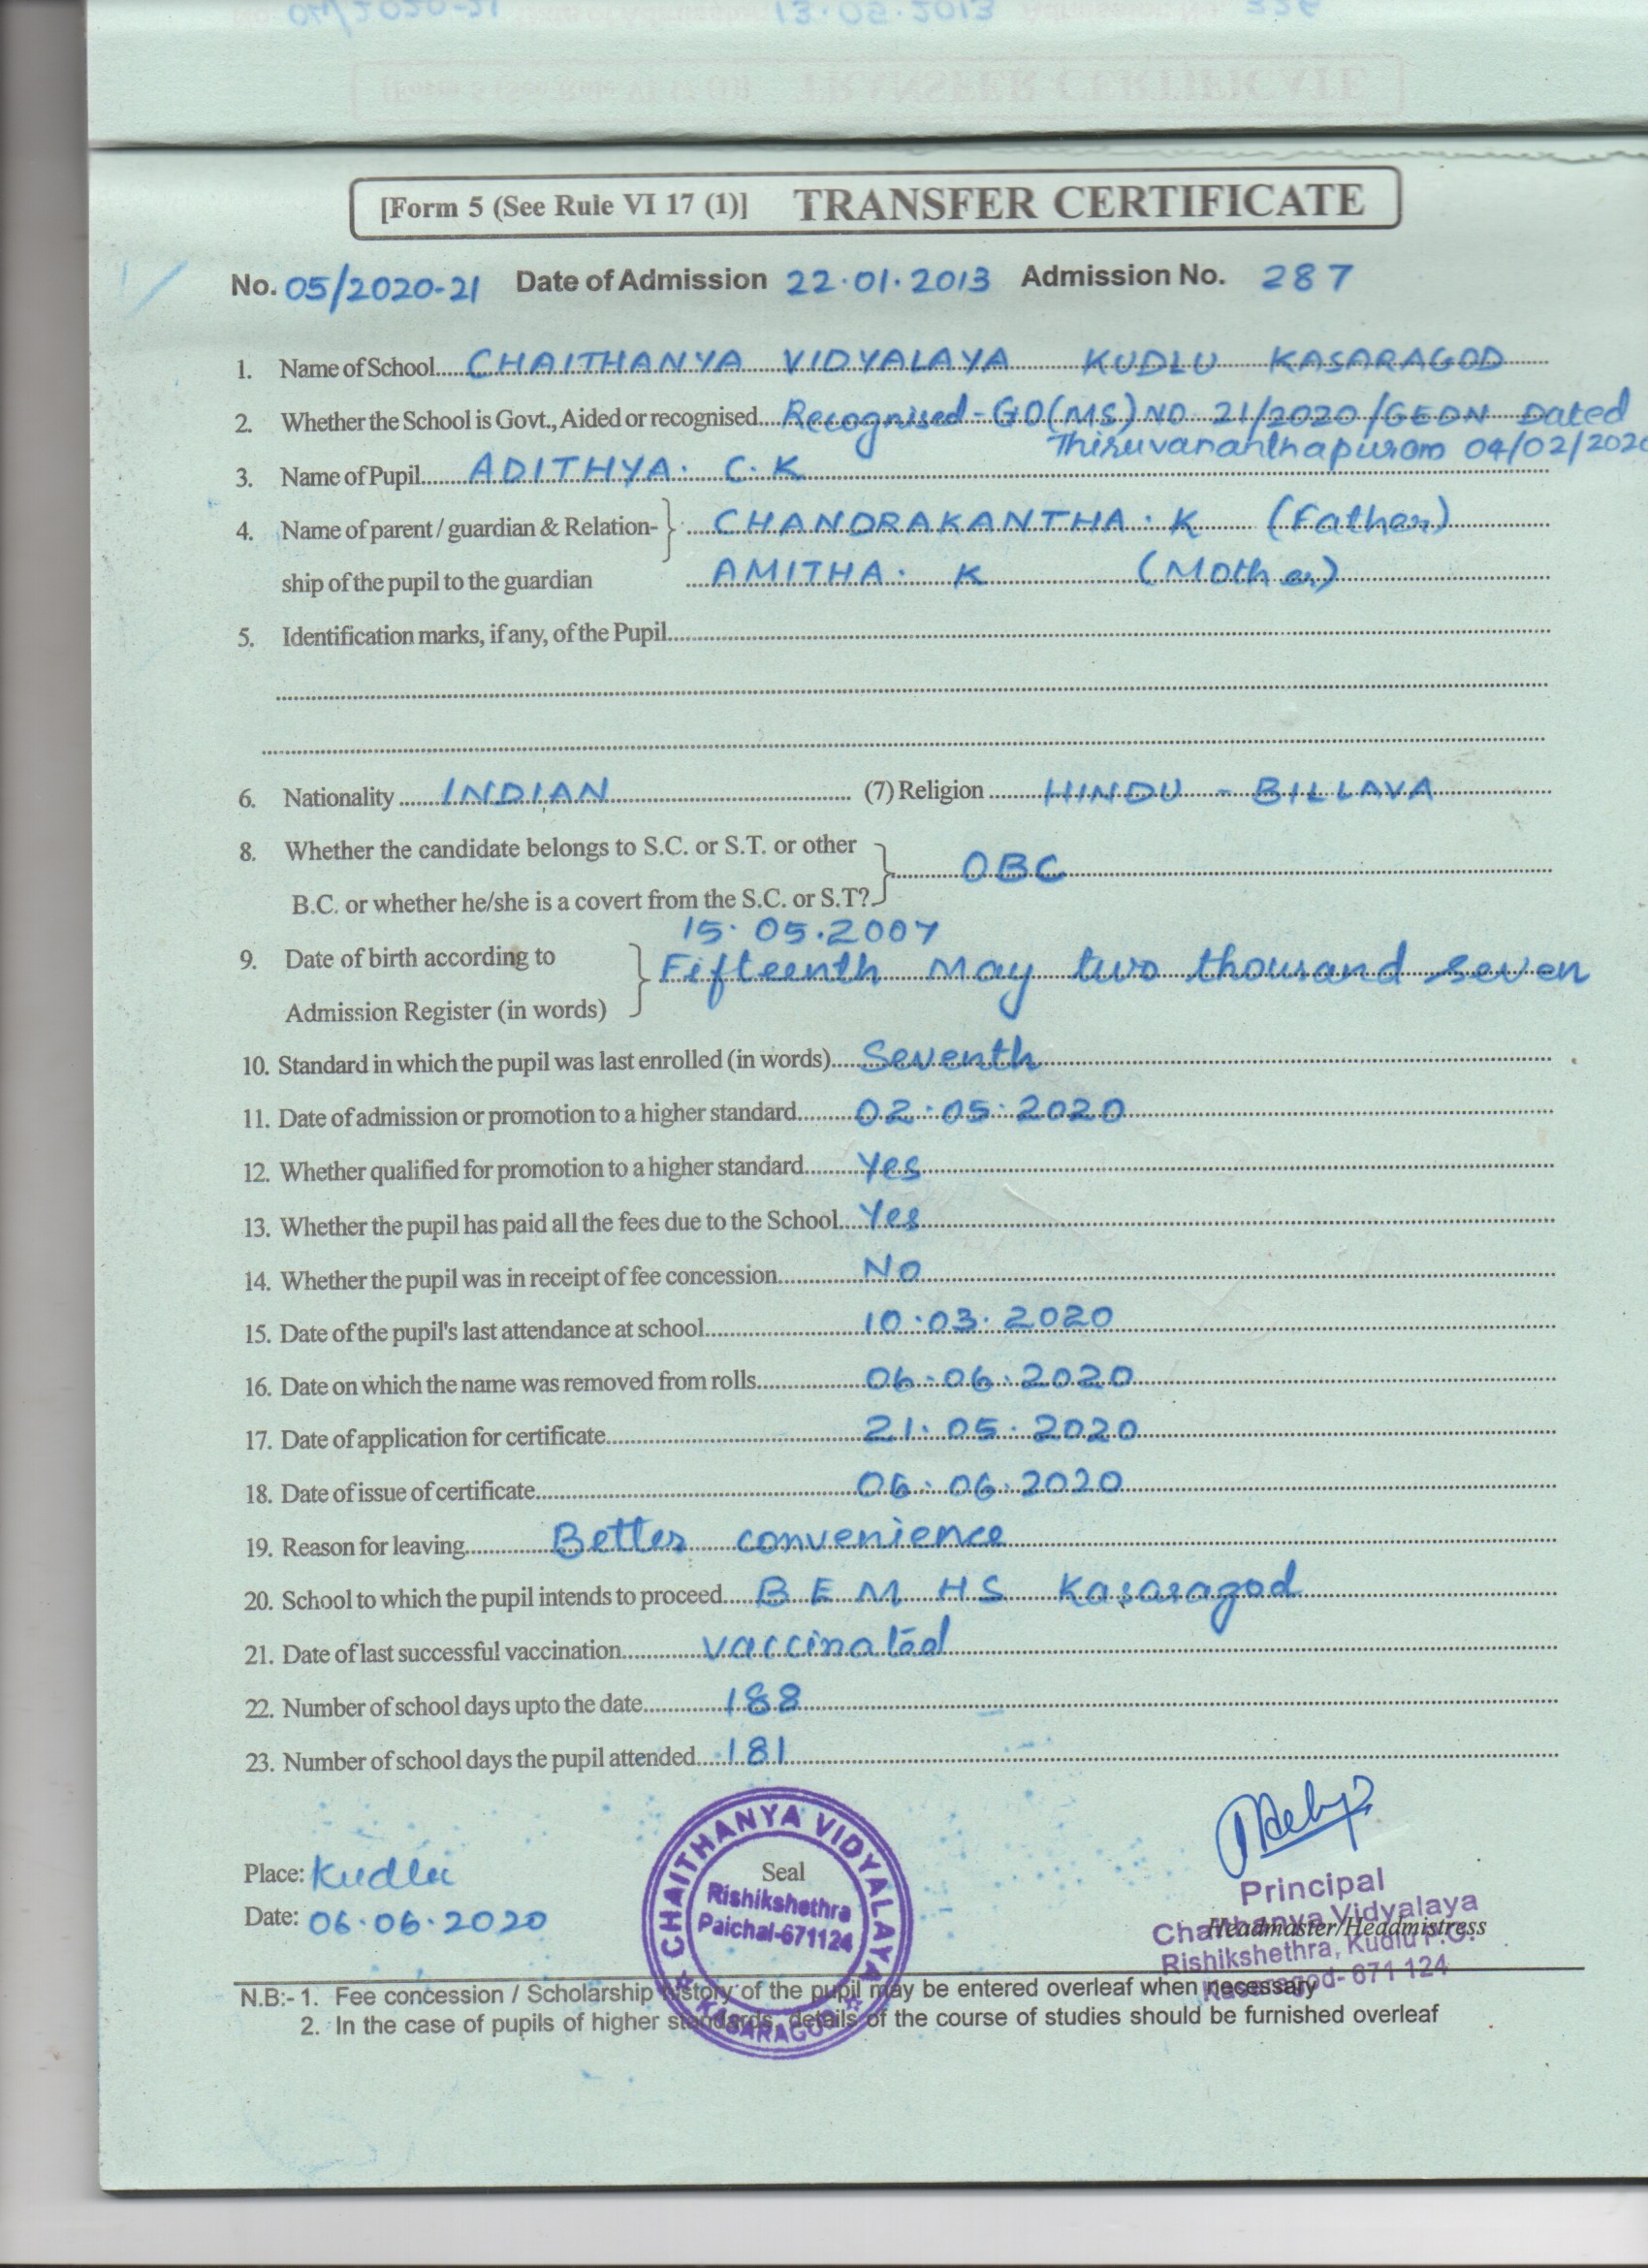 [Form 5 (See Rule VI 17 (1)] TRANSFER CERTIFICATE
No. 05/2020-21 Date of Admission 22.01.2013 Admission No. 287
1. Name of School CHAITHANYA VIDYALAYA KUDLU KASARAGOD
2. Whether the School is Govt., Aided or recognised Recognised - GO(MS) NO 21/2020/GEDN Dated
Thiruvananthapuram 04/02/2020
3. Name of Pupil ADITHYA. C.K
4. Name of parent / guardian & Relation- CHANDRAKANTHA. K (Father)
ship of the pupil to the guardian AMITHA. K (Mother)
5. Identification marks, if any, of the Pupil
6. Nationality INDIAN (7) Religion HINDU - BILLAVA
8. Whether the candidate belongs to S.C. or S.T. or other
OBC
B.C. or whether he/she is a covert from the S.C. or S.T?
15.05.2007
9. Date of birth according to Fifteenth May two thousand seven
Admission Register (in words)
10. Standard in which the pupil was last enrolled (in words) Seventh
11. Date of admission or promotion to a higher standard 02.05.2020
12. Whether qualified for promotion to a higher standard Yes
13. Whether the pupil has paid all the fees due to the School Yes
14. Whether the pupil was in receipt of fee concession No
15. Date of the pupil's last attendance at school 10.03.2020
16. Date on which the name was removed from rolls 06.06.2020
17. Date of application for certificate 21.05.2020
18. Date of issue of certificate 06.06.2020
19. Reason for leaving Better convenience
20. School to which the pupil intends to proceed B E M H S Kasaragod
21. Date of last successful vaccination vaccinated
22. Number of school days upto the date 188
23. Number of school days the pupil attended 181
Place: Kudlu
Date: 06.06.2020
Seal
CHAITHANYA VIDYALAYA
Rishikshethra
Paichal-671124
KASARAGOD
Principal
Chaithanya Vidyalaya
Headmaster/Headmistress
Rishikshethra, Kudlu P.O.
Kasaragod- 671 124
N.B:- 1. Fee concession / Scholarship history of the pupil may be entered overleaf when necessary
2. In the case of pupils of higher standards, details of the course of studies should be furnished overleaf